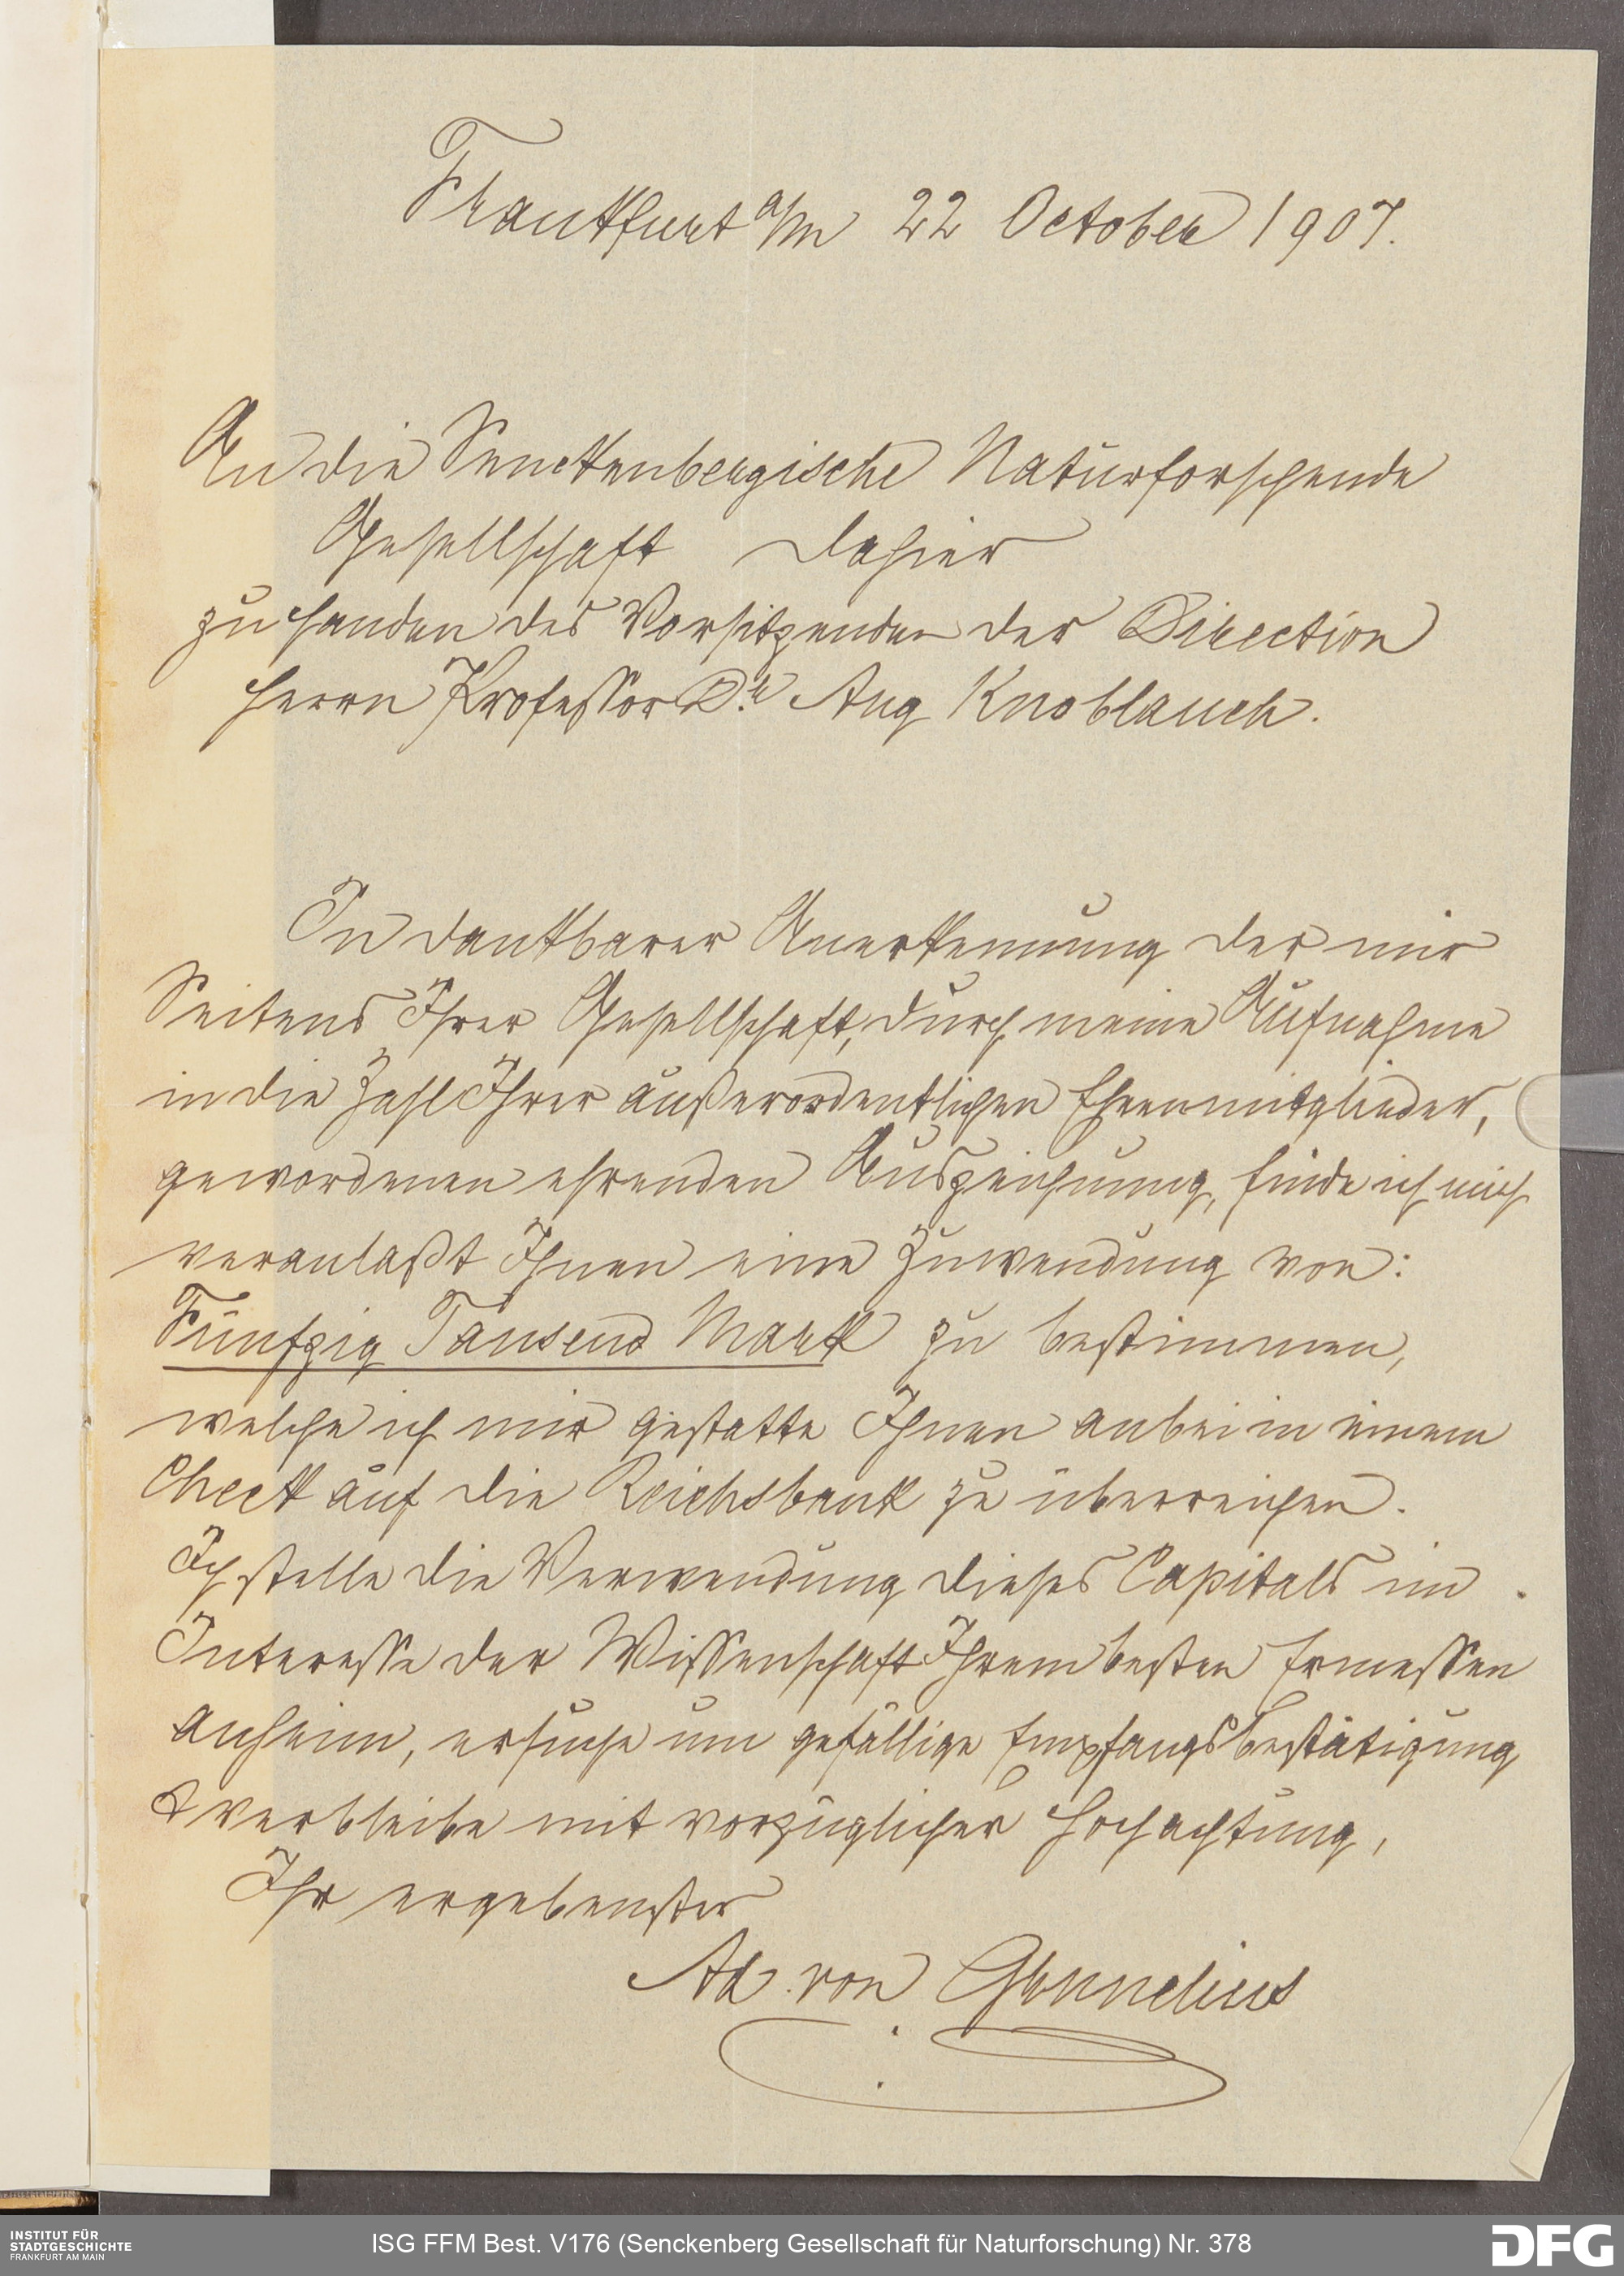 Frankfurt a/m 22 October 1907.
An die Senckenbergische Naturforschende
Gesellschaft dahier
zu Handen des Vorsitzenden der Direction
Herrn Professor Dr. Aug Knoblauch.
In dankbarer Anerkennung der mir
Seitens Ihrer Gesellschaft, durch meine Aufnahme
in die Zahl Ihrer außerordentlichen Ehrenmitglieder,
gewordenen ehrenden Auszeichnung, finde ich mich
veranlaßt Ihnen eine Zuwendung von:
Fünfzig Tausend Mark zu bestimmen,
welche ich mir gestatte Ihnen anbei in einem
Check auf die Reichsbank zu überreichen.
Ich stelle die Verwendung dieses Capitals im
Interesse der Wissenschaft Ihrem besten Ermessen
anheim, ersuche um gefällige Empfangsbestätigung
& verbleibe mit vorzüglicher Hochachtung,
Ihr ergebenster
Ad. von
INSTITUT FÜR
STADTGESCHICHTE
FRANKFURT AM MAIN
ISG FFM Best. V176 (Senckenberg Gesellschaft für Naturforschung) Nr. 378
DFG